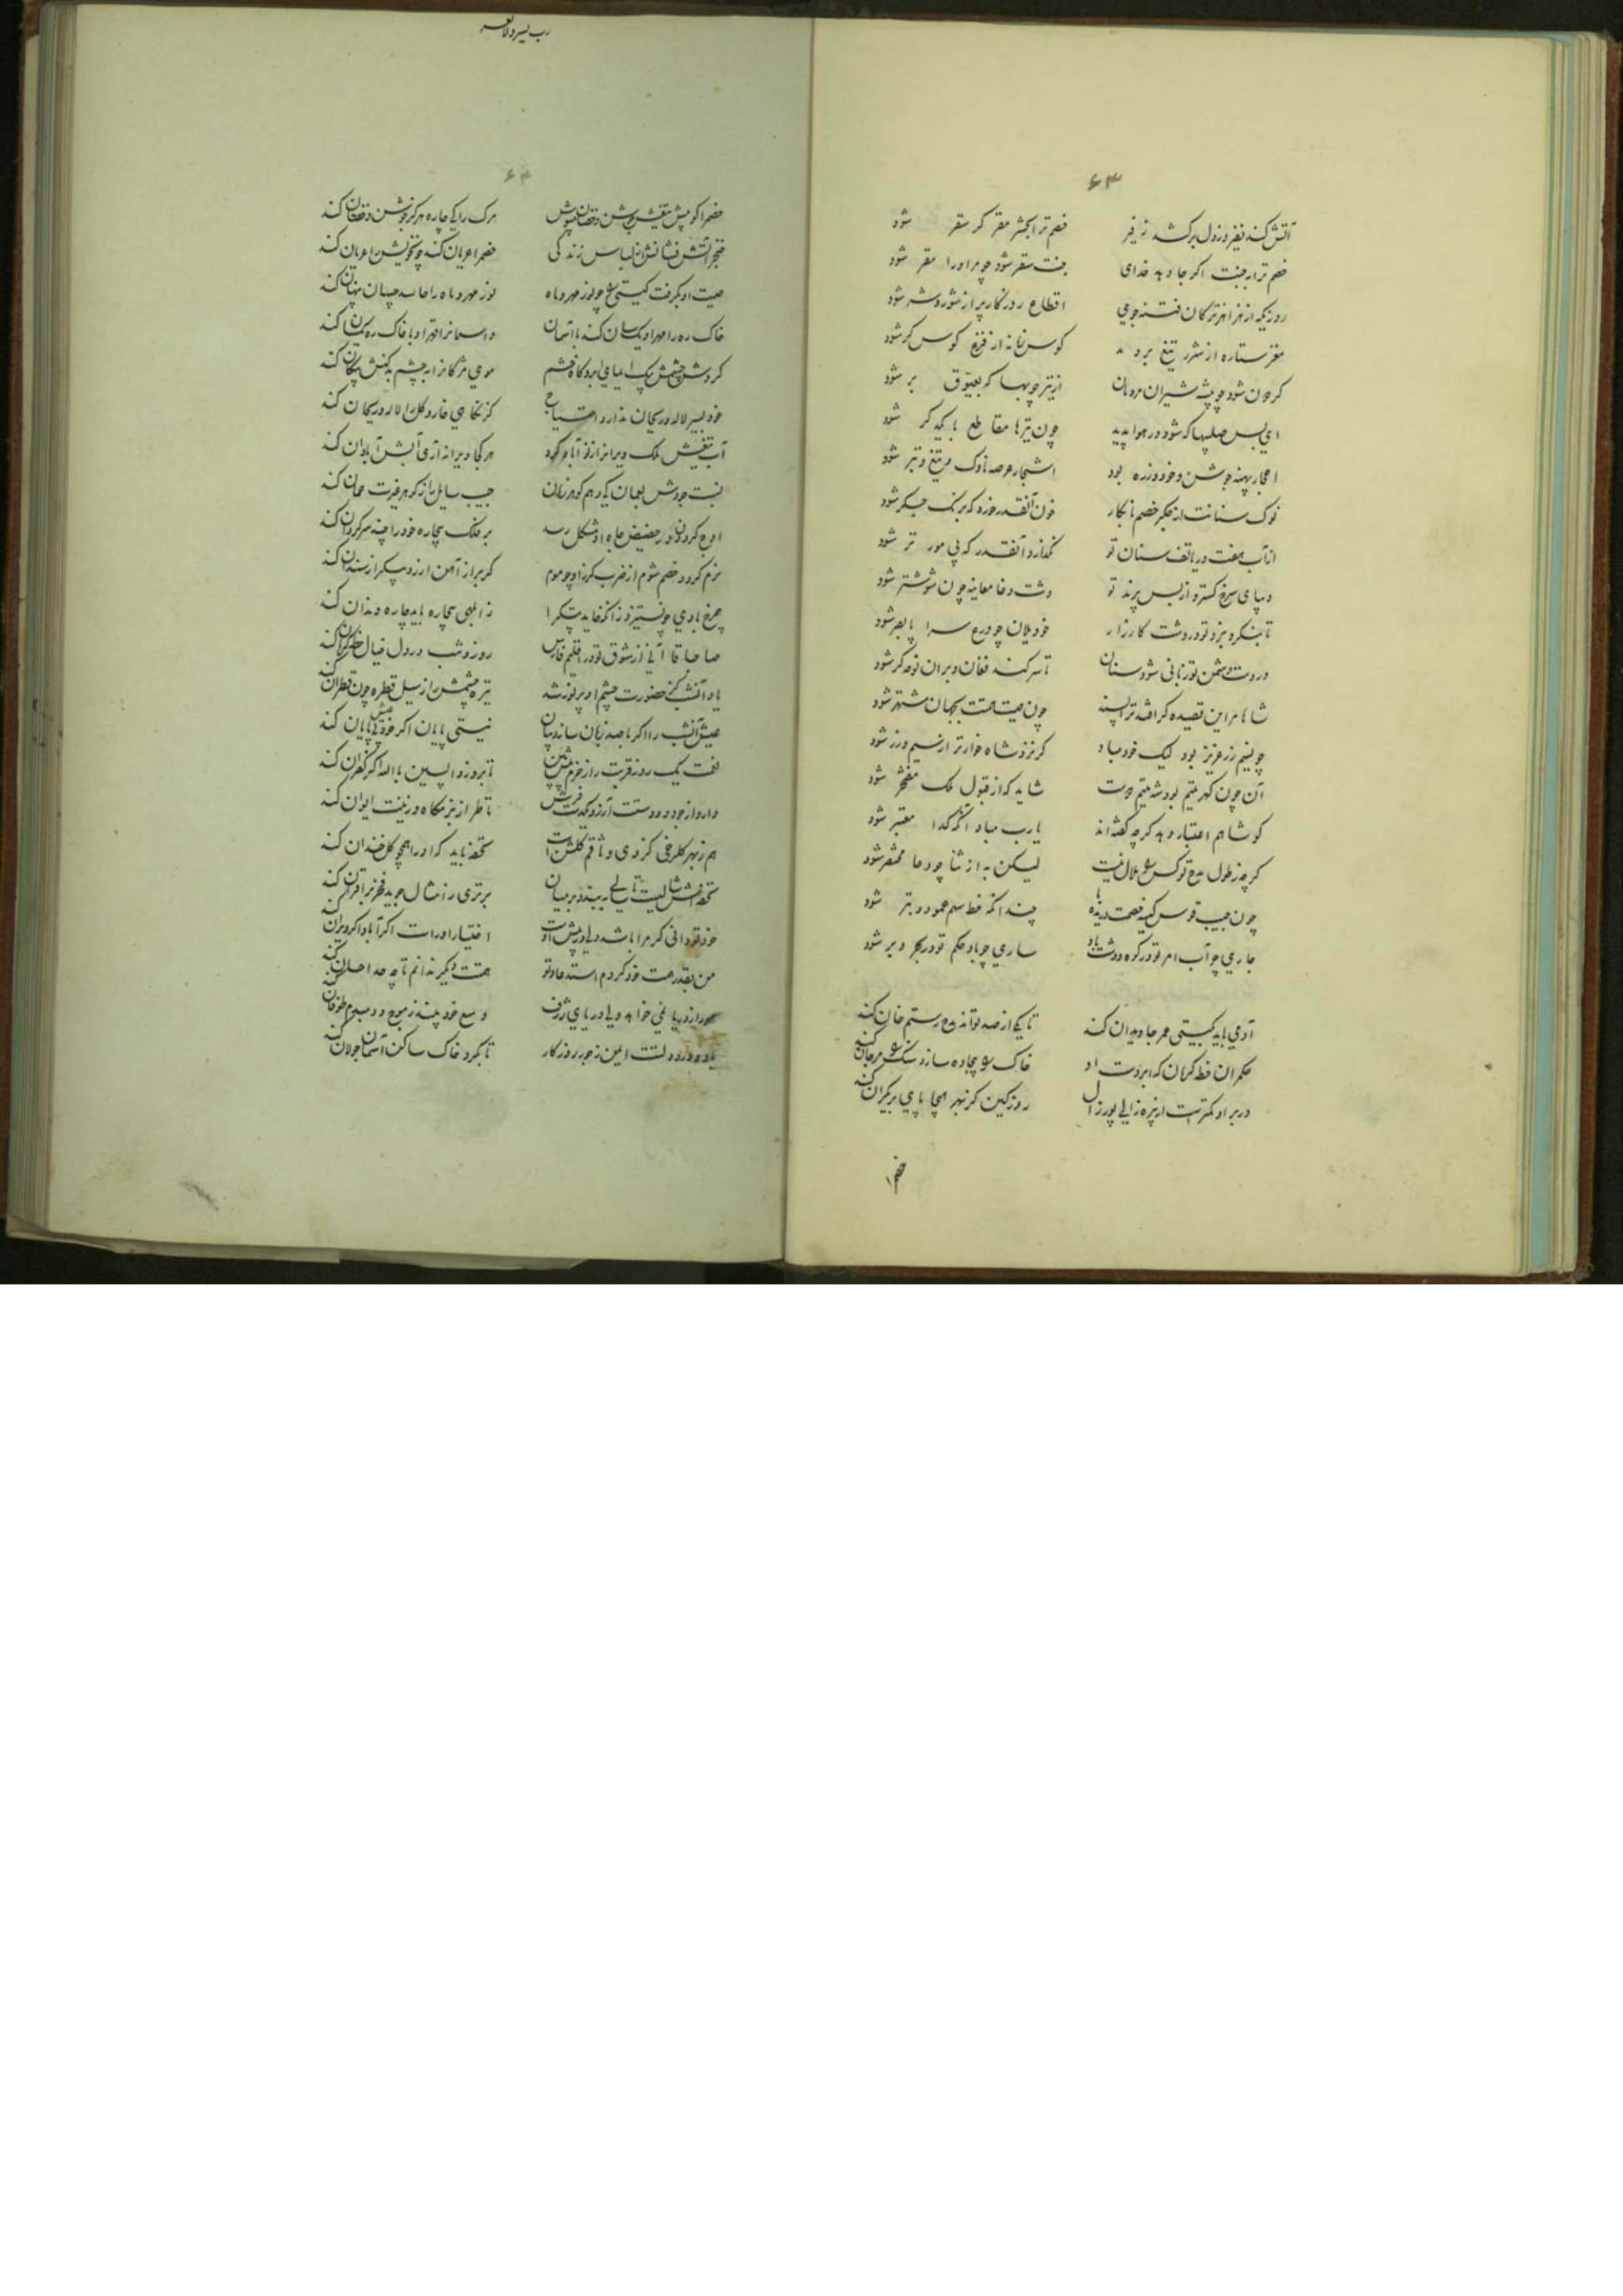 ۶۳
آتش کند نفیر و ز دل برکشد زفیر خصم ترا بحشر مقر گر سقر شود
خصم ترا به جنت اگر جا دهد خدای جنت سقر شود چو مر او را مقر شود
روزیکه از هزاهز ترکان فتنه جوی اقطاع روزگار پر از شور و شر شود
مغز ستاره از شرر تیغ بر دمد گوس زمانه از فزع کوس کر شود
گردون شود چو بیشه شیران مردمان از تیر چوبها که بعیّوق بر شود
ای بس صلیبها که شود در هوا پدید چون تیرها مقاطع با یکدگر شود
احجار پهنه جوشن و خود و زره بود اشجار عرصه ناوک و تیغ و تبر شود
نوک سنانت از جگر خصم نابکار خون آنقدر خورد که برنگ جگر شود
از آب هفت دریا تف سنان تو نگذارد آنقدر که پی مور تر شود
دیبای سرخ گسترد از بس پرند تو دشت وغا معاینه چون شوشتر شود
تا بنگرد نبرد تو در دشت کارزار خود یلان چو درع سرا پا بصر شود
در دست دشمن تو زبانی شود سنان تا سر کند فغان و بر آن نوحه گر شود
شاها مر این قصیده گر افتد ترا پسند چون صیت همتت بجهان مشتهر شود
چو نیم زر عزیز بود لیک خود مباد کز نزد شاه خوارتر از سیم و زر شود
آن چون گهر یتیم بود شه یتیم دوست شاید که از قبول ملک مفتخر شود
کو شاهم اعتبار دهد گرچه گفته اند یارب مباد آنکه گدا معتبر شود
گرچه ز طول مدح تو کس را ملال نیست لیکن به از ثنا چو دعا مختصر شود
چون جیب قوس چنداکه خط سهم عمود و وتر شود
جاری چو آب امر تو در کوه و دشت باد ساری چو باد حکم تو در بحر و بر شود
آدمی باید بگیتی عمر جاویدان کند تا یکی از صد تواند مدح رستم خان کند
حکمران خطه کرمان که ابر دست او خاک را بیجاده سازد سنگ را مرجان کند
در بر او کمترست از پیره زالی پور زال روز کین کز بهر هیجا پای بر یکران کند
خصم را
رب یسر ولاتعسر
۶۴
خصم را گو پیش تیغش جوشن و خفتان مپوش مرگ را کی چاره هرگز جوشن و خفتان کند
خنجر آتش فشانش از لباس زندگی خصم را عریان کند چون خویش را عریان کند
صیت او بگرفت گیتی را چو نور مهر و ماه نور مهر و ماه را حاسد چسان پنهان کند
خاک ره را مهر او یکسان کند با آسمان و آسمان را قهر او با خاک ره یکسان کند
گردش چشمش بیک ایمای ابرو گاه خشم موی مژگان را به چشم بدکنش پیکان کند
خود بسیر لاله و ریحان ندارد احتیاج کز نکاهی خار و گل را لاله و ریحان کند
آب تیغش ملک ویران را ز نو آباد کرد هر کجا ویرانه آری آبش آبادان کند
نسبت جودش بعمان کی دهم کوهر زمان جیب سایل را ز گوهر غیرت عمان کند
اوج گردون در حضیض جاه او مشکل رسد بر فلک بیچاره خود را چند سرگردان کند
نرم گردد خصم شوم از ضرب گرز او چو موم گر بر از آهن ار زو پیکر از سندان کند
چرخ با وی چون ستیزد زانکه خاید پتک را ز ابلهی بیچاره باید چاره دندان کند
صاحبا قاآنی از شوق تو در اقلیم فارس روز و شب در دل خیال خطه کرمان کند
یاد آنشب کز حضورت چشم او پر نور شد تیره چشمش را ز سیل قطره چون قطران کند
عیش آنشب را اگر با صد زبان سازد بیان نیستی پایان اگر خود عیش بی پایان کند
نعمت یک روز قربت را ز خرم تا بروز واپسین بالله اگر کفران کند
دارد از جود و دستت آرزو یکدست فرش تا طراز بزمگاه و زینت ایوان کند
هم ز بهر گلرخی کز وی وثاقم گلشن است تحفه باید که او را همچو گل خندان کند
تحفه اش شالیست تا بر میان برتری ز امثال جوید فخر بر اقران کند
خود تو دانی گر مرا باشد دلی در پیش اوست اختیار او راست اگر آباد اگر ویران کند
من بقدر همت خود کردم استدعا و تو همتت دیگر ندانم تا چه حد احسان کند
مور از دریا نمی خواهد ولی دریای ژرف وسع خود بیند ز موج دم بدم طوفان کند
باد دور دولتت ایمن ز جور روزگار تا بگرد خاک ساکن آسمان جولان کند